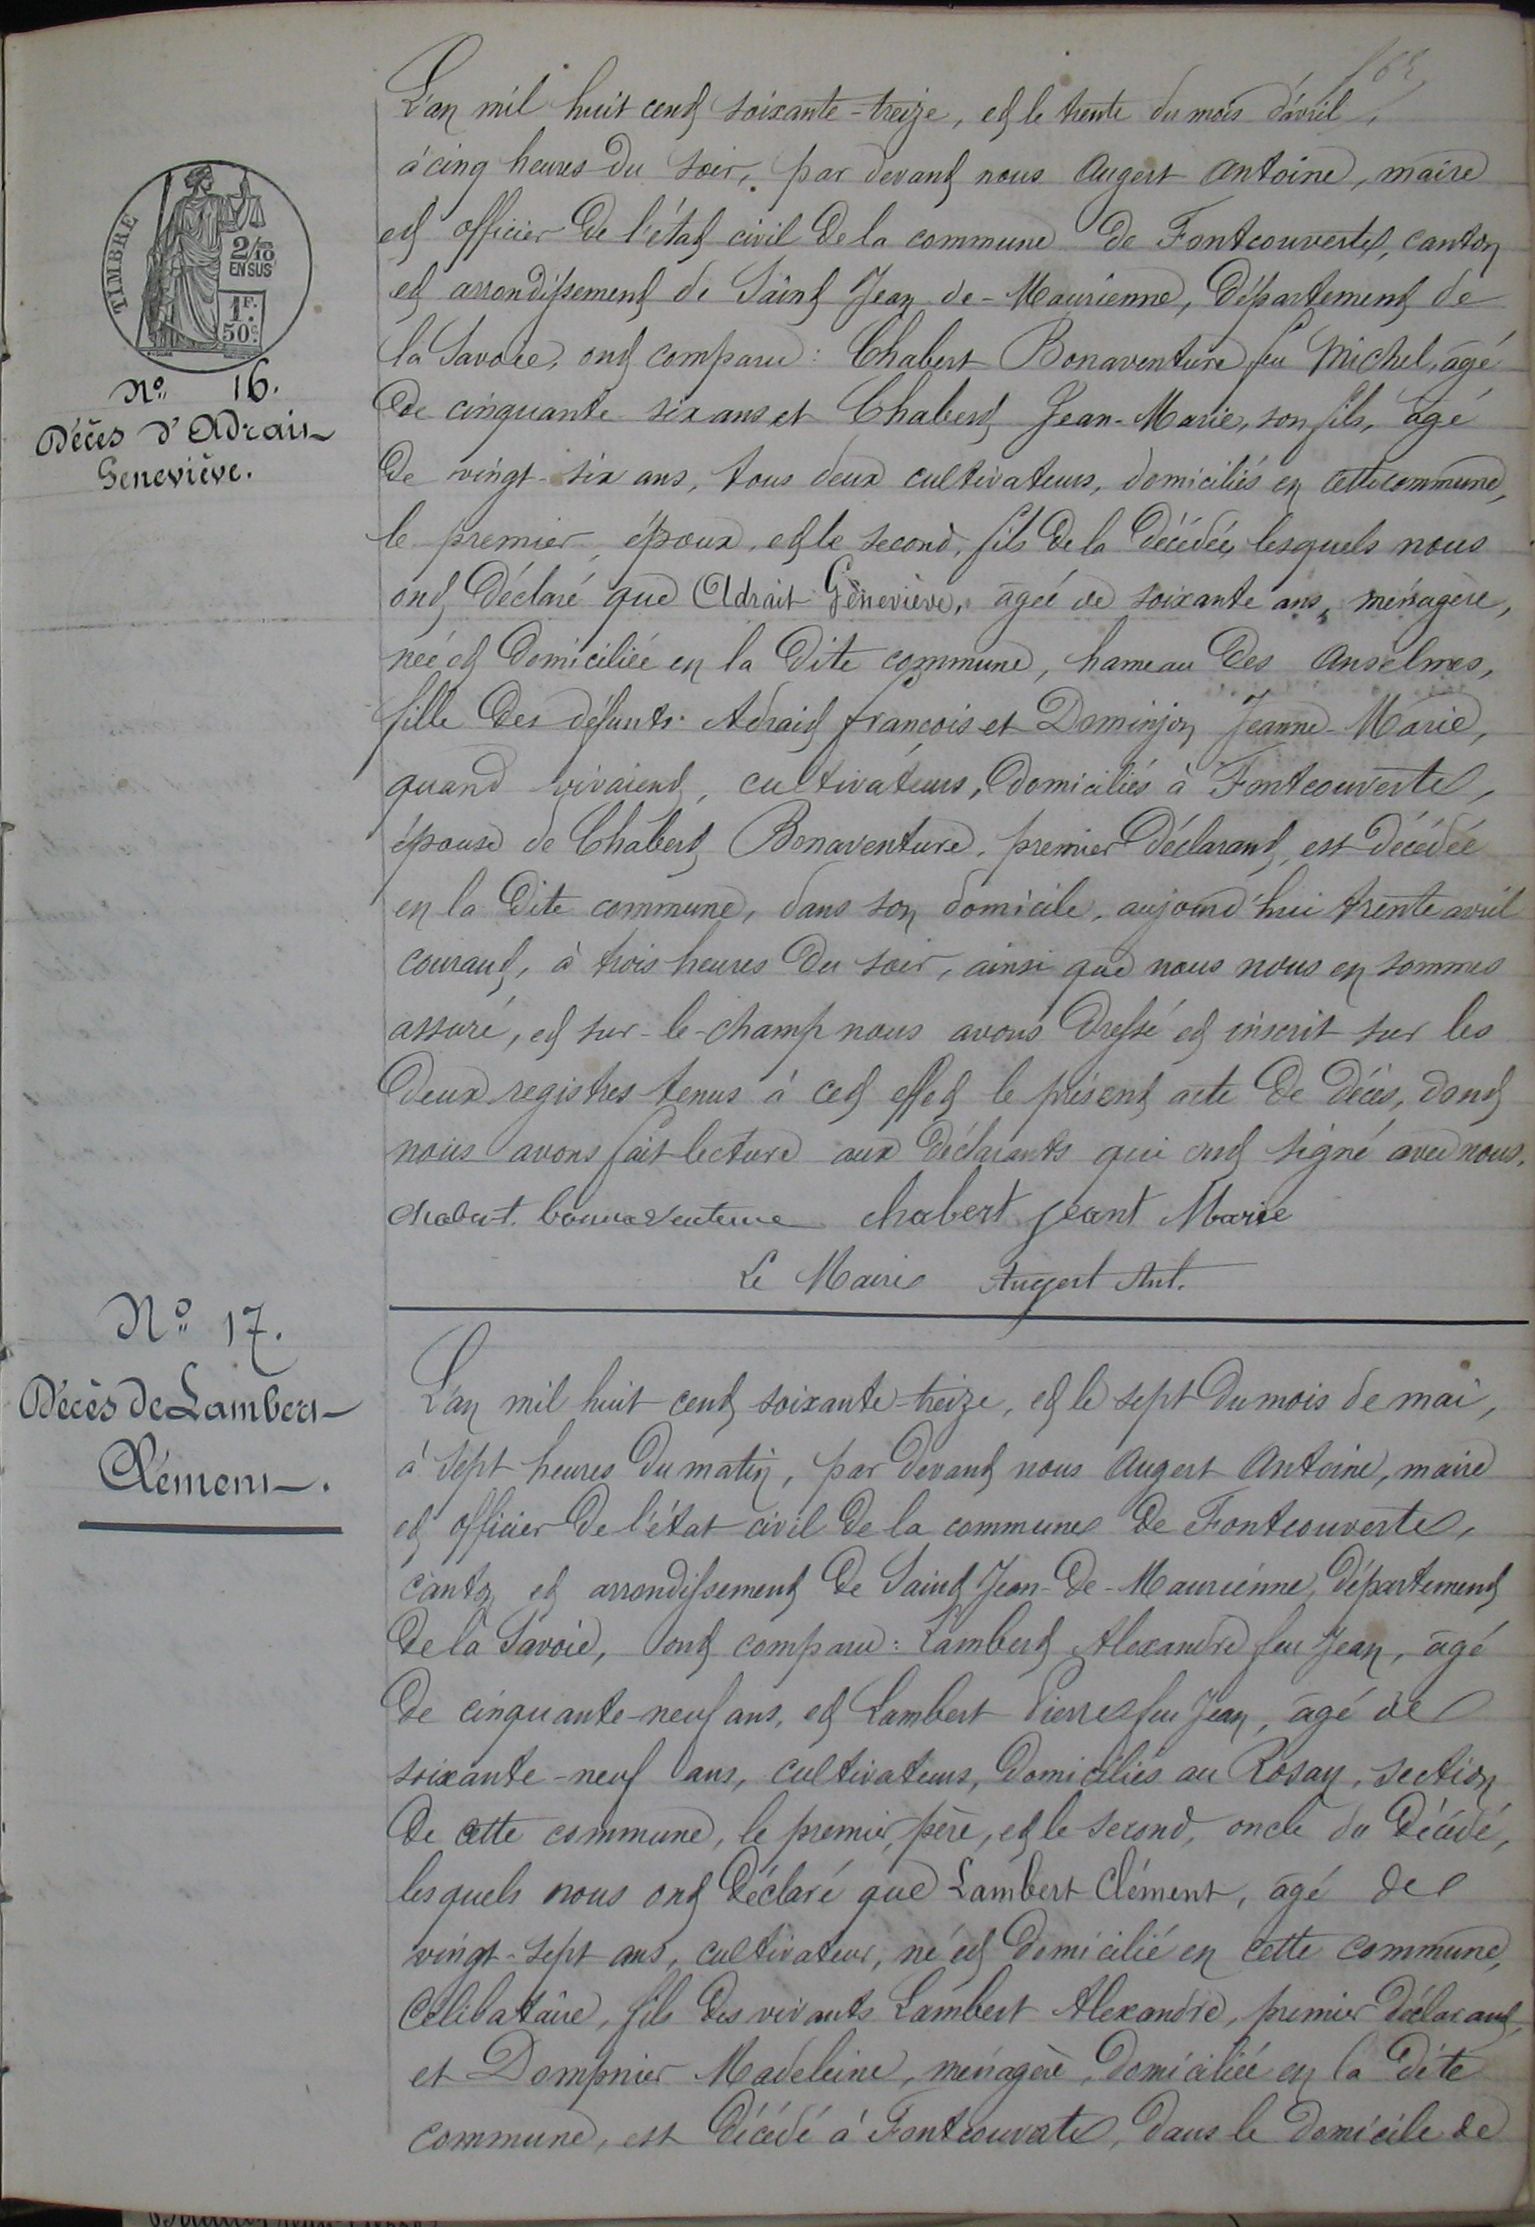 TIMBRE
2/10
EN SUS
1F.
50c.
No. 16.
Décès d'Adrait
Geneviève.
L'an mil huit cent soixante-treize, et le trente du mois d'avril,
à cinq heures du soir, par devant nous Augert Antoine, maire
et officier de l'état civil de la commune de Fontcouverte, canton
et arrondissement de Saint Jean de-Maurienne, Département de
la Savoie, ont comparu : Chabert Bonaventure feu Michel, âgé
de cinquante-six ans et Chabert Jean-Marie, son fils, âgé
de vingt-six ans, tous deux cultivateurs, domiciliés en cette commune,
le premier, époux, et le second, fils de la décédée, lesquels nous
ont déclaré que Adrait Gèneviève, âgée de soixante ans, ménagère,
née et domiciliée en la dite commune, hameau des Anselmes,
fille des défunts Adrait françois et Dominjon Jeanne-Marie,
quand vivaient, cultivateurs, domiciliés à Fontcouverte,
épouse de Chabert Bonaventure, premier déclarant, est décédée
en la dite commune, dans son domicile, aujourd'hui trente avril
courant, à trois heures du soir, ainsi que nous nous en sommes
assuré, et sur-le-champ nous avons dressé et inscrit sur les
deux registres tenus à cet effet le présent acte de décès, dont
nous avons fait lecture aux déclarants qui ont signé avec nous.
chabert bonnaventure chabert jeant Marie
Le Maire Augert Ant.
No. 17.
Décès de Lambert
Clément.
L'an mil huit cent soixante-treize, et le sept du mois de mai,
à sept heures du matin, par devant nous Augert Antoine, maire
et officier de l'état civil de la commune de Fontcouverte,
canton et arrondissement de Saint Jean-de-Maurienne, département
de la Savoie, ont comparu : Lambert Alexandre feu Jean, âgé
de cinquante-neuf ans, et Lambert Pierre feu Jean, âgé de
soixante-neuf ans, cultivateurs, domiciliés au Rosay, section
de cette commune, le premier, père, et le second, oncle du décédé,
lesquels nous ont déclaré que Lambert Clément, âgé de
vingt-sept ans, cultivateur, né et domicilié en cette commune,
célibataire, fils des vivants Lambert Alexandre, premier déclarant,
et Dompnier Madeleine, ménagère, domiciliée en la dite
commune, est décédé à Fontcouverte, dans le domicile de